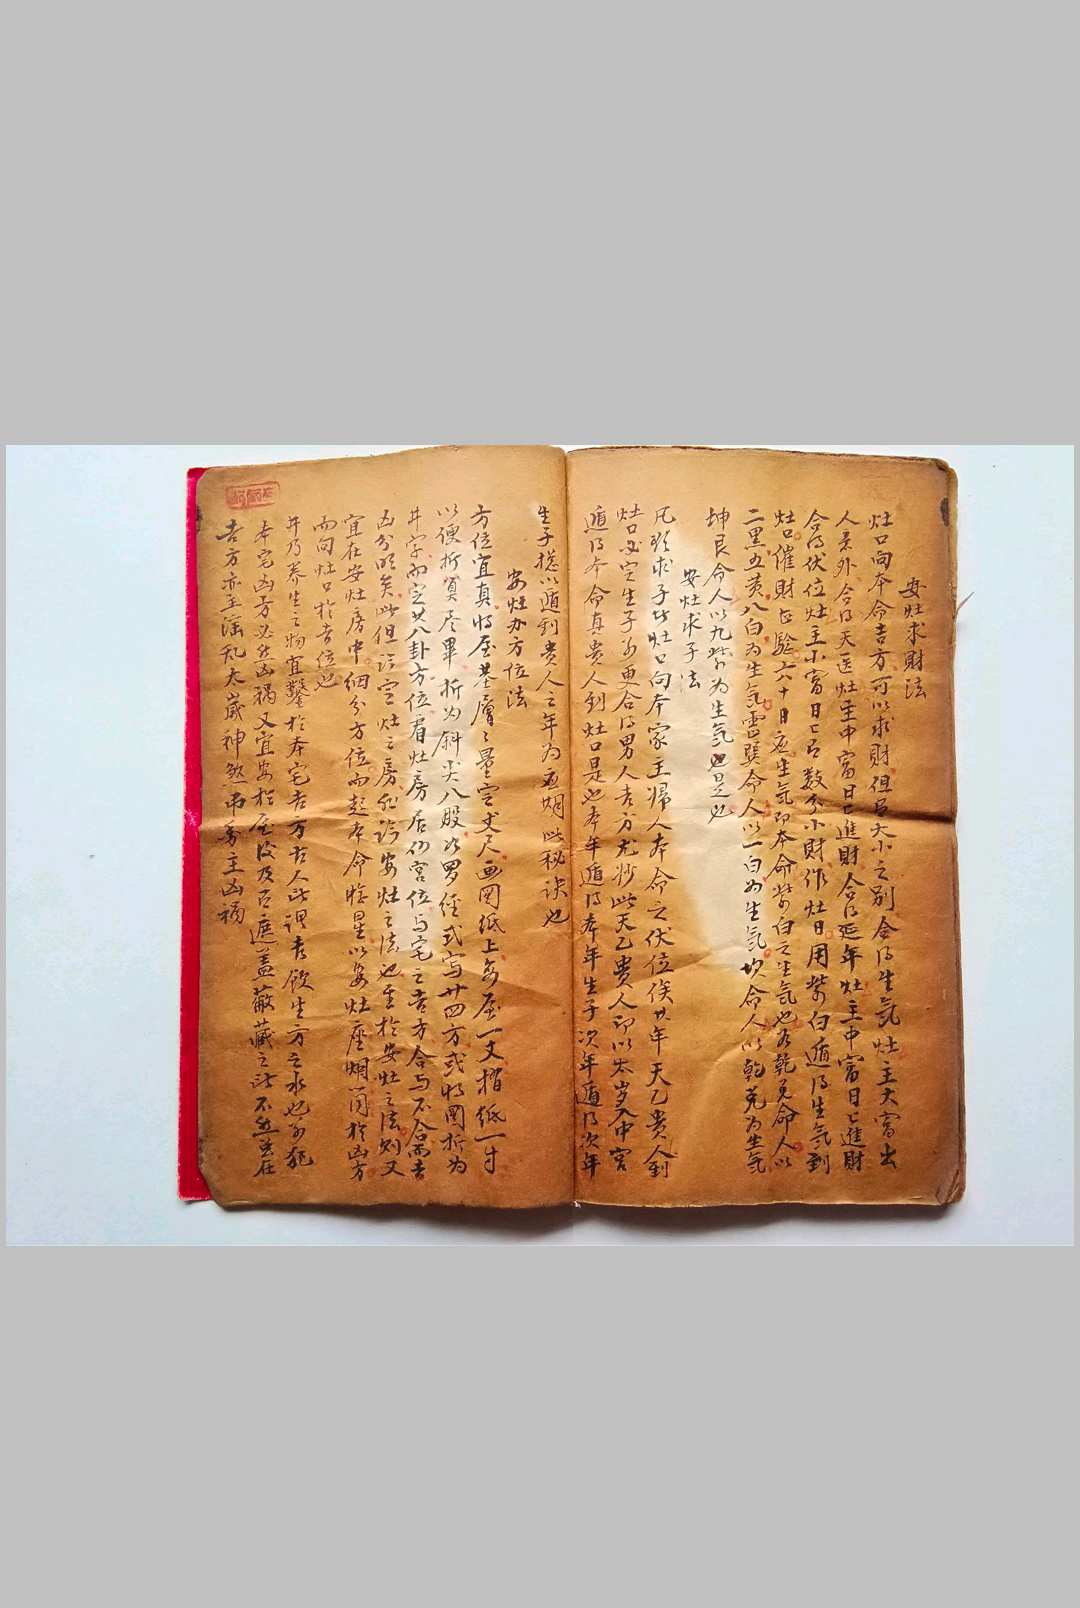 安灶求財法
灶口向本命吉方可以求財但有大小之別合得生氣灶主大富出
人意外合得天医灶主中富日亡進財合得延年灶主中富日亡進財
合得伏位灶主小富日亡有数分小財作灶日用紫白遁得生氣到
灶口催財正驗六十日应生氣即本命紫白之生氣也如乾兑命人以
二黑五黄八白为生氣震巽命人以一白为生氣坎命人以乾兑为生氣
坤艮命人以九紫为生氣也是也
安灶求子法
凡欲求子者灶口向本家主婦人本命之伏位俟廿年天乙貴人到
灶口必定生子如更合得男人吉方尤妙此天乙貴人即以太岁入中宮
遁得本命真貴人到灶口是也本年遁得本年生子次年遁得次年
生子揔以遁到貴人之年为应期此秘诀也
安灶办方位法
方位宜真將屋基層〻量定丈尺画図紙上每屋一丈摺紙一寸
以便折算尽畢折为斜尖八股如男經式写廿四方或將図折为
井字而定廿八卦方位看灶房居何宮位与宅之吉方合与不合而吉
凶分明矣此但論定灶之房非論安灶之法也至於安灶之法則又
宜在安灶房中细分方位而起本命晧星以安灶座烟囱於凶方
而向灶口於吉位也
井乃养生之物宜鑿於本宅吉方古人此謂吉飲生方之水也如犯
本宅凶方必然凶禍又宜安於屋後及有遮盖蔽藏之此不然在
吉方亦主滛乱太歲神煞吊旁主凶禍